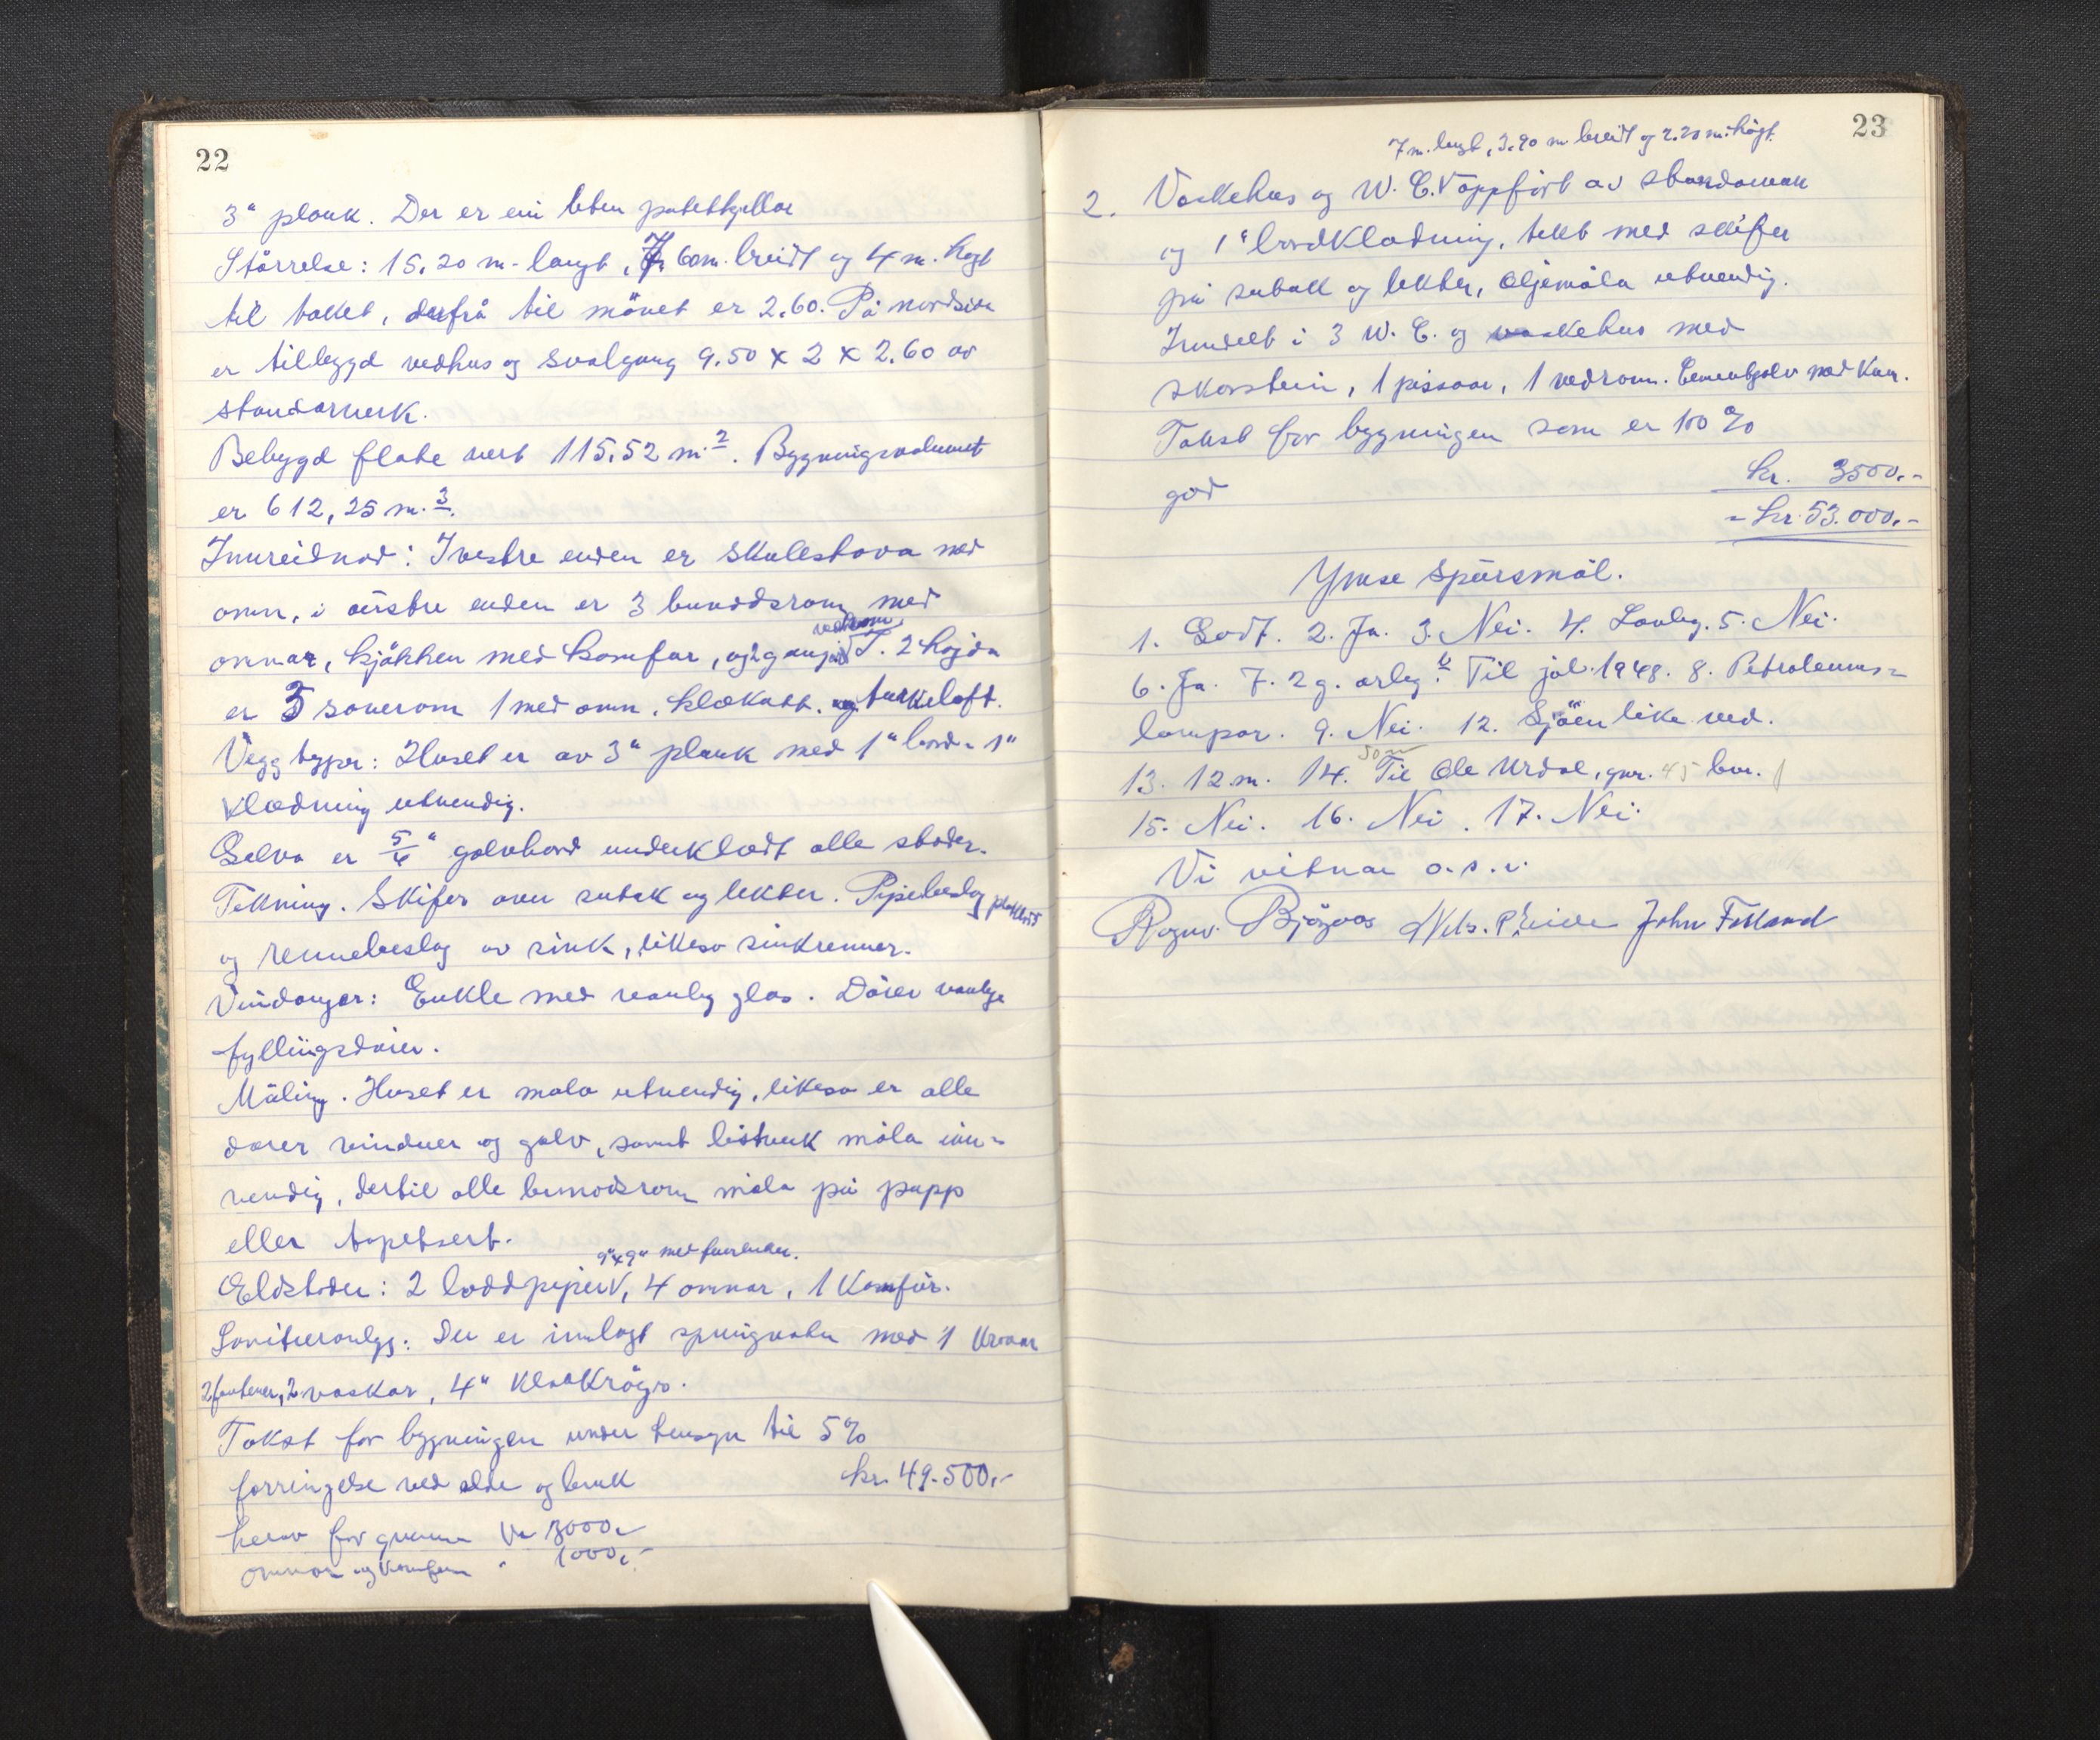 22
3" plank. Der er ein liten potetkjellar
Störrelse: 15.20 m. langt, 7,60 m. breidt og 4 m. høgt
til taket, derfrå til mönet er 2.60. På nordsida
er tilbygd vedhus og svalgang 9.50 x 2 x 2.60 av
standarverk.
Bebygd flate vert 115,52 m.². Bygningsvolumet
er 612,25 m.³.
Innreidnad: I vestre enden er skulestova med
omn, i austre enden er 3 buradsrom med
vedrom
omnar, kjökken med komfur, og 2 gangar. 2 högda
er 3 soverom 1 med omn, klekott, og turkeloft.
Veggtyper: Huset er av 3" plank med 1" bord- 1"
kledning utvendig.
Golva er 5/4" golvbord underkledt alle stader.
Tekning. Skifer over sutak og lekter. Pipebeslag
og rennebeslag av sink, likeso sinkrenner.
Vindauger: Enkle med vanleg glas. Dører vanlege
fyllingsdører.
Måling. Huset er mala utvendig, likeso er alle
dører vinduer og golv, samt listverk måla inn-
vendig, dertil alle bunadsrom måla på papp
eller tapetsert.
9"x9" med
Eldstader: 2 loddpiper V, 4 omnar, 1 Komfür.
Sanitæranlegg: Der er innlagt springvatn med 1 kraner
2 fontener, 2 vaskar, 4" Kloakkrøyr.
Takst for bygningen under hensyn til 5%
forringelse ved elde og bruk kr. 49.500,-
herav for grunn kr 3000,-
omnar og komfur " 1000,-
23
7 m. langt, 3.90 m breidt og 2.20 m. högt.
2. Vaskehus og W. C. V oppfört av standarverk
og 1" bordkledning, tekt med skifer
på sutak og lekter, oljemåla utvendig.
Inndelt i 3 W. C. og vaskehus med
skorstein, 1 pissoar, 1 vedrom. Cementgolv med
Takst for bygningen som er 100%
god kr. 3500.-
= kr. 53.000.-
Ymse spörsmål.
1. Godt. 2. Ja. 3. Nei. 4. Lovleg. 5. Nei.
6. Ja. 7. 2 g. årleg. Til jol. 1948. 8. Petroleums-
lampar. 9. Nei. 12. Sjöen like ved.
50 m
13. 12 m. 14. Til Ole Urdal, gnr. 45 bnr. 1
15. Nei. 16. Nei. 17. Nei.
Vi vitnar o.s.v.
Ragnv. Bjågaas Nils. P. Eide John Folland